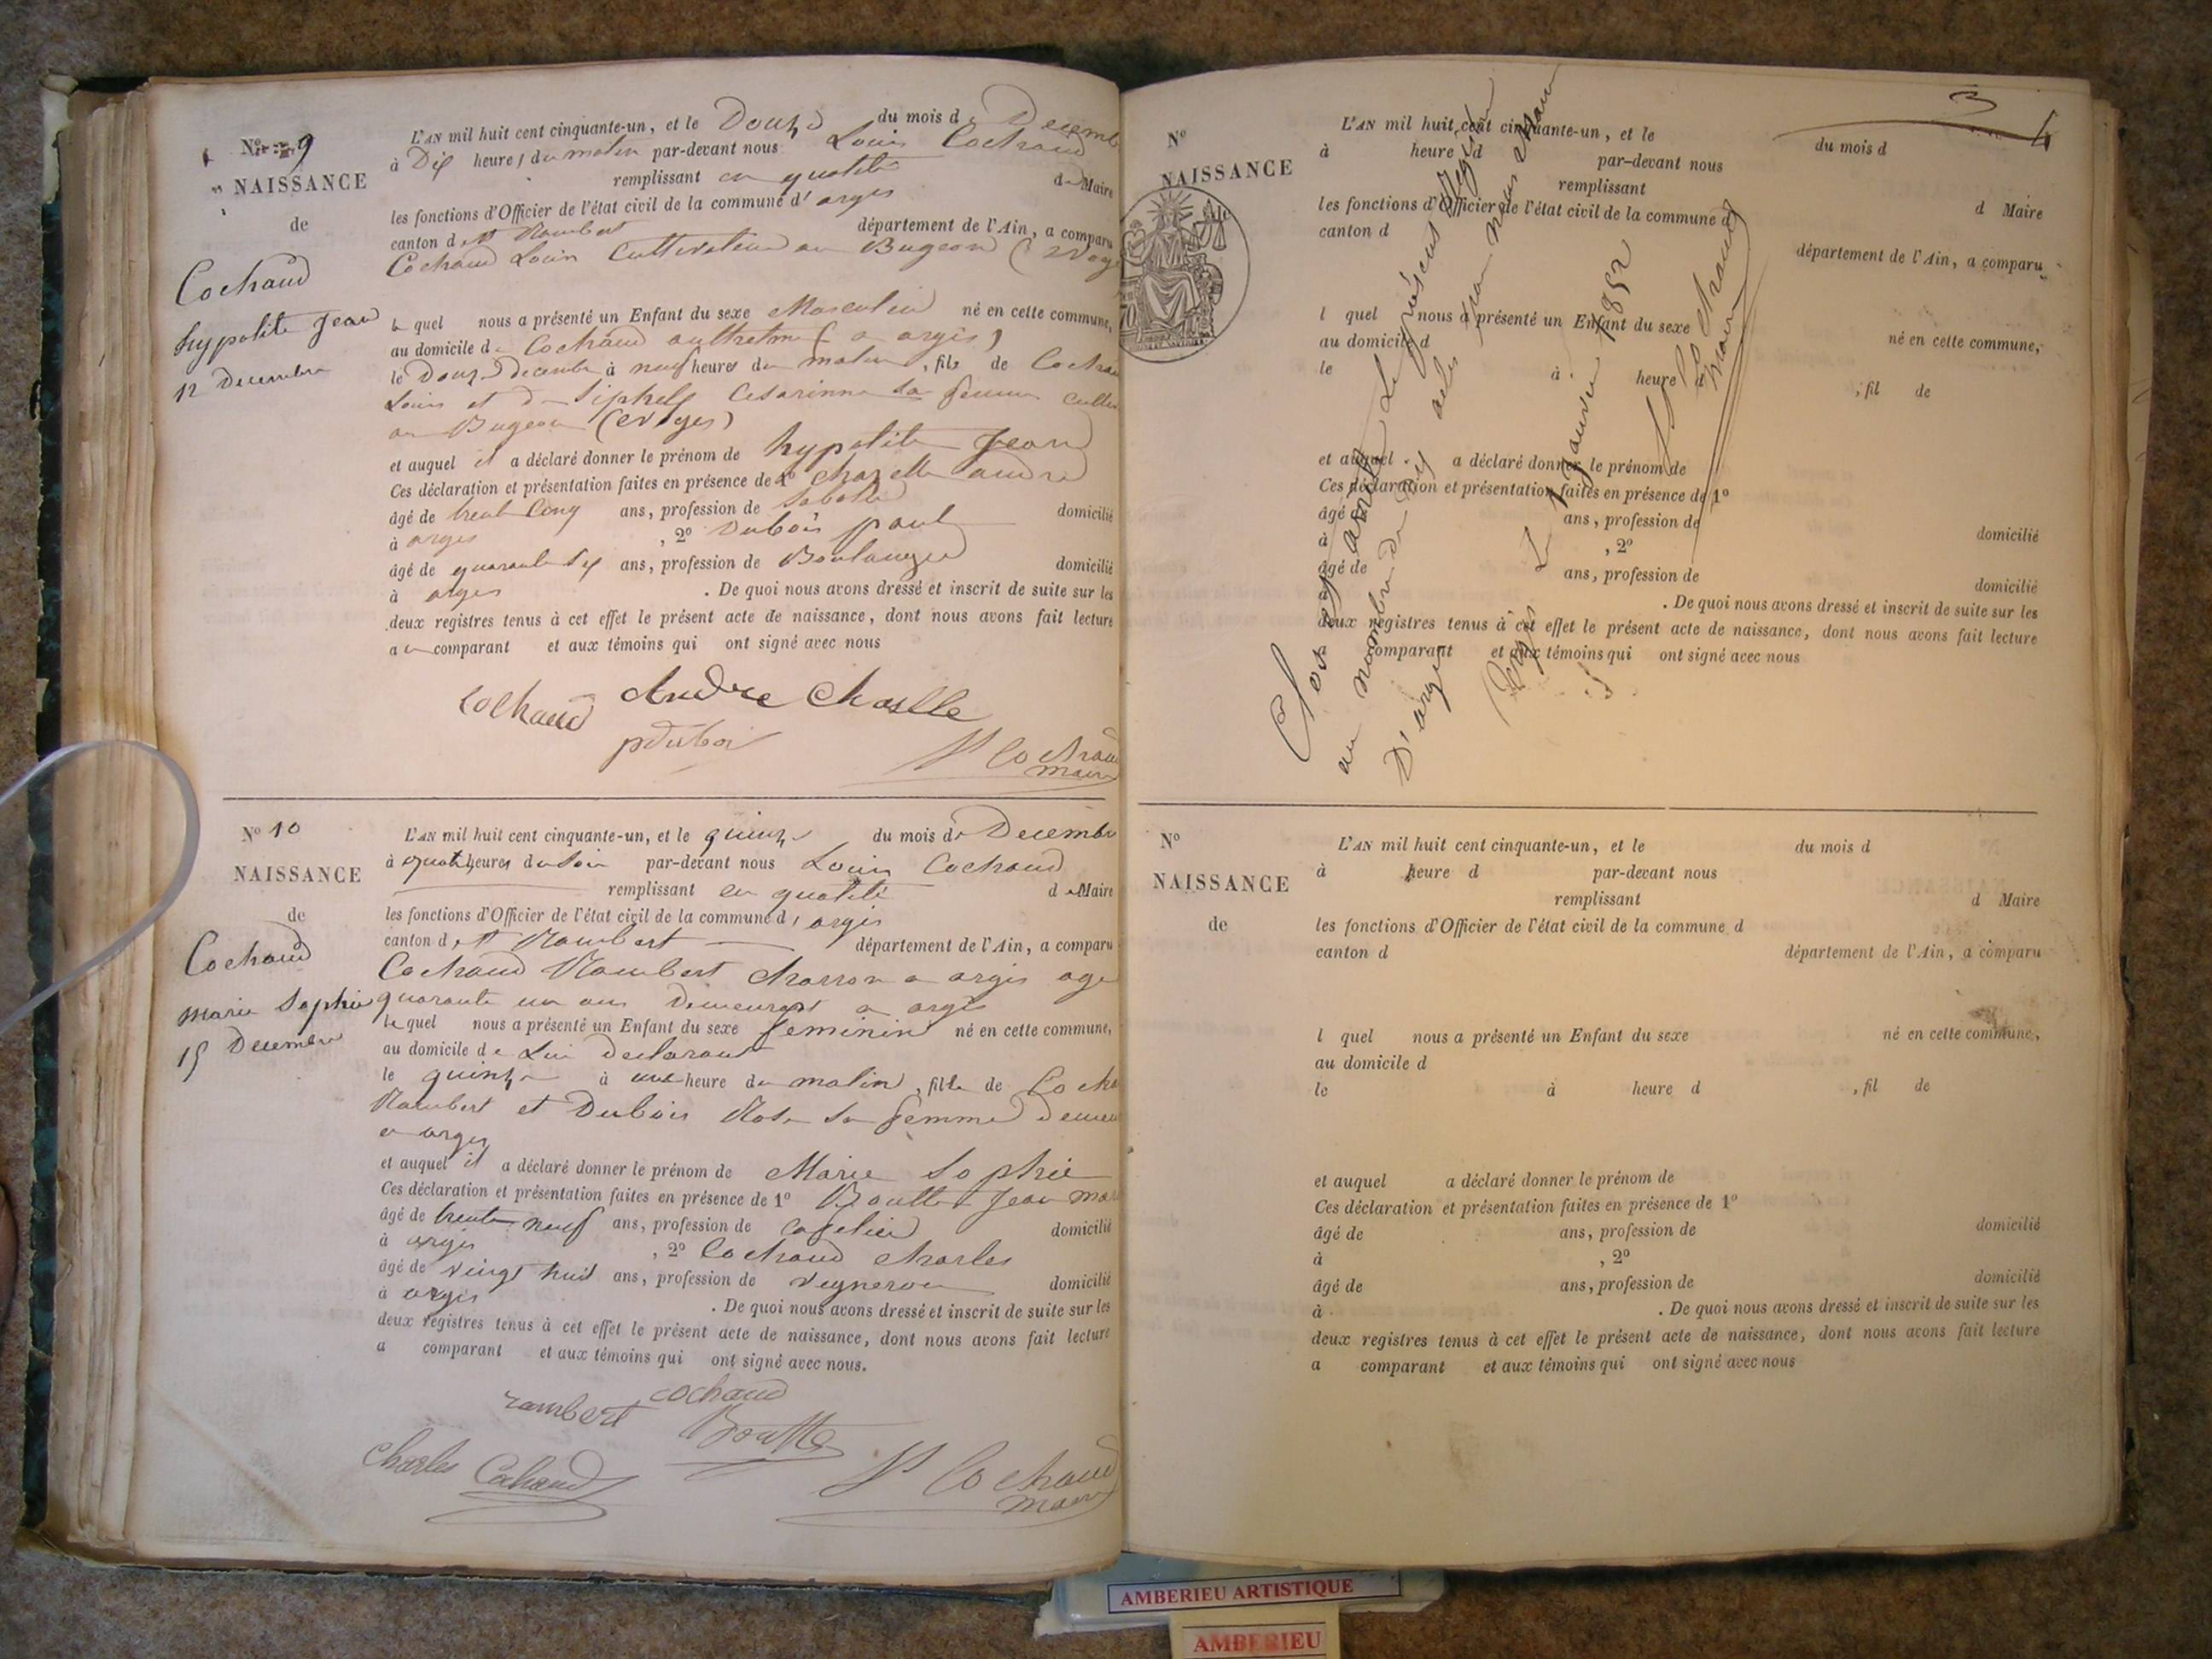 N° 9
NAISSANCE
de
Cochaud
hypolite Jean
12 Decembre
L'AN mil huit cent cinquante-un, et le Douze du mois de Decemb
à Dix heures du matin par-devant nous Louis Cochaud
remplissant en qualité de Maire
les fonctions d'Officier de l'état civil de la commune d'argis
canton de St Rambert département de l'Ain, a comparu
Cochaud Louis Cultivateur au Bugeon
le quel nous a présenté un Enfant du sexe Masculin né en cette commune,
au domicile de Cochaud a argis
le Douze Decembre à neuf heures du matin, fils de Cochau
Louis et de Cesarinne sa femme
au Bugeon
et auquel il a déclaré donner le prénom de hypolite Jean
Ces déclaration et présentation faites en présence de 1° Chazelle andre
âgé de trente Cinq ans, profession de domicilié
à argis, 2° Dubois paul
âgé de quarante Six ans, profession de Boulanger domicilié
à argis. De quoi nous avons dressé et inscrit de suite sur les
deux registres tenus à cet effet le présent acte de naissance, dont nous avons fait lecture
au comparant et aux témoins qui ont signé avec nous
Cochaud Andre Chaselle
pduboi
Ls Cochaud
maire
N° 10
NAISSANCE
de
Cochaud
Marie Sophie
15 Decembre
L'AN mil huit cent cinquante-un, et le quinze du mois de Decembre
à quatre heures du Soir par-devant nous Louis Cochaud
remplissant en qualité de Maire
les fonctions d'Officier de l'état civil de la commune d'argis
canton de St Rambert département de l'Ain, a comparu
Cochaud Rambert charron a argis age
quarante un ans Demeurant a argis
le quel nous a présenté un Enfant du sexe feminin né en cette commune,
au domicile de Lui declarant
le quinze à une heure du matin, fille de Cocha
Rambert et Dubois Rose sa femme Demeu
a argis
et auquel il a déclaré donner le prénom de Marie Sophie
Ces déclaration et présentation faites en présence de 1° Boutte Jean mar
âgé de trente neuf ans, profession de domicilié
à argis, 2° Cochaud charles
âgé de vingt huit ans, profession de vigneron domicilié
à argis. De quoi nous avons dressé et inscrit de suite sur les
deux registres tenus à cet effet le présent acte de naissance, dont nous avons fait lecture
a comparant et aux témoins qui ont signé avec nous.
rambert cochaud
Boutte
Charles Cochaud
Ls Cochaud
maire
3
4
N°
NAISSANCE
L'AN mil huit cent cinquante-un, et le du mois d
à heure d par-devant nous
remplissant d Maire
les fonctions d'Officier de l'état civil de la commune d
canton d département de l'Ain, a comparu
l quel nous a présenté un Enfant du sexe né en cette commune,
au domicile d
le à heure d, fil de
et auquel a déclaré donner le prénom de
Ces déclaration et présentation faites en présence de 1°
âgé de ans, profession de domicilié
à, 2°
âgé de ans, profession de domicilié
à. De quoi nous avons dressé et inscrit de suite sur les
deux registres tenus à cet effet le présent acte de naissance, dont nous avons fait lecture
a comparant et aux témoins qui ont signé avec nous
Clos et arrêté Le présent Régistre
au nombre de Dix actes par nous Maire
D'argis
argis Le 1 Janvier 1852
Ls Cochaud
Maire
N°
NAISSANCE
de
L'AN mil huit cent cinquante-un, et le du mois d
à heure d par-devant nous
remplissant d Maire
les fonctions d'Officier de l'état civil de la commune d
canton d département de l'Ain, a comparu
l quel nous a présenté un Enfant du sexe né en cette commune,
au domicile d
le à heure d, fil de
et auquel a déclaré donner le prénom de
Ces déclaration et présentation faites en présence de 1°
âgé de ans, profession de domicilié
à, 2°
âgé de ans, profession de domicilié
à. De quoi nous avons dressé et inscrit de suite sur les
deux registres tenus à cet effet le présent acte de naissance, dont nous avons fait lecture
a comparant et aux témoins qui ont signé avec nous
AMBERIEU ARTISTIQUE
AMBERIEU